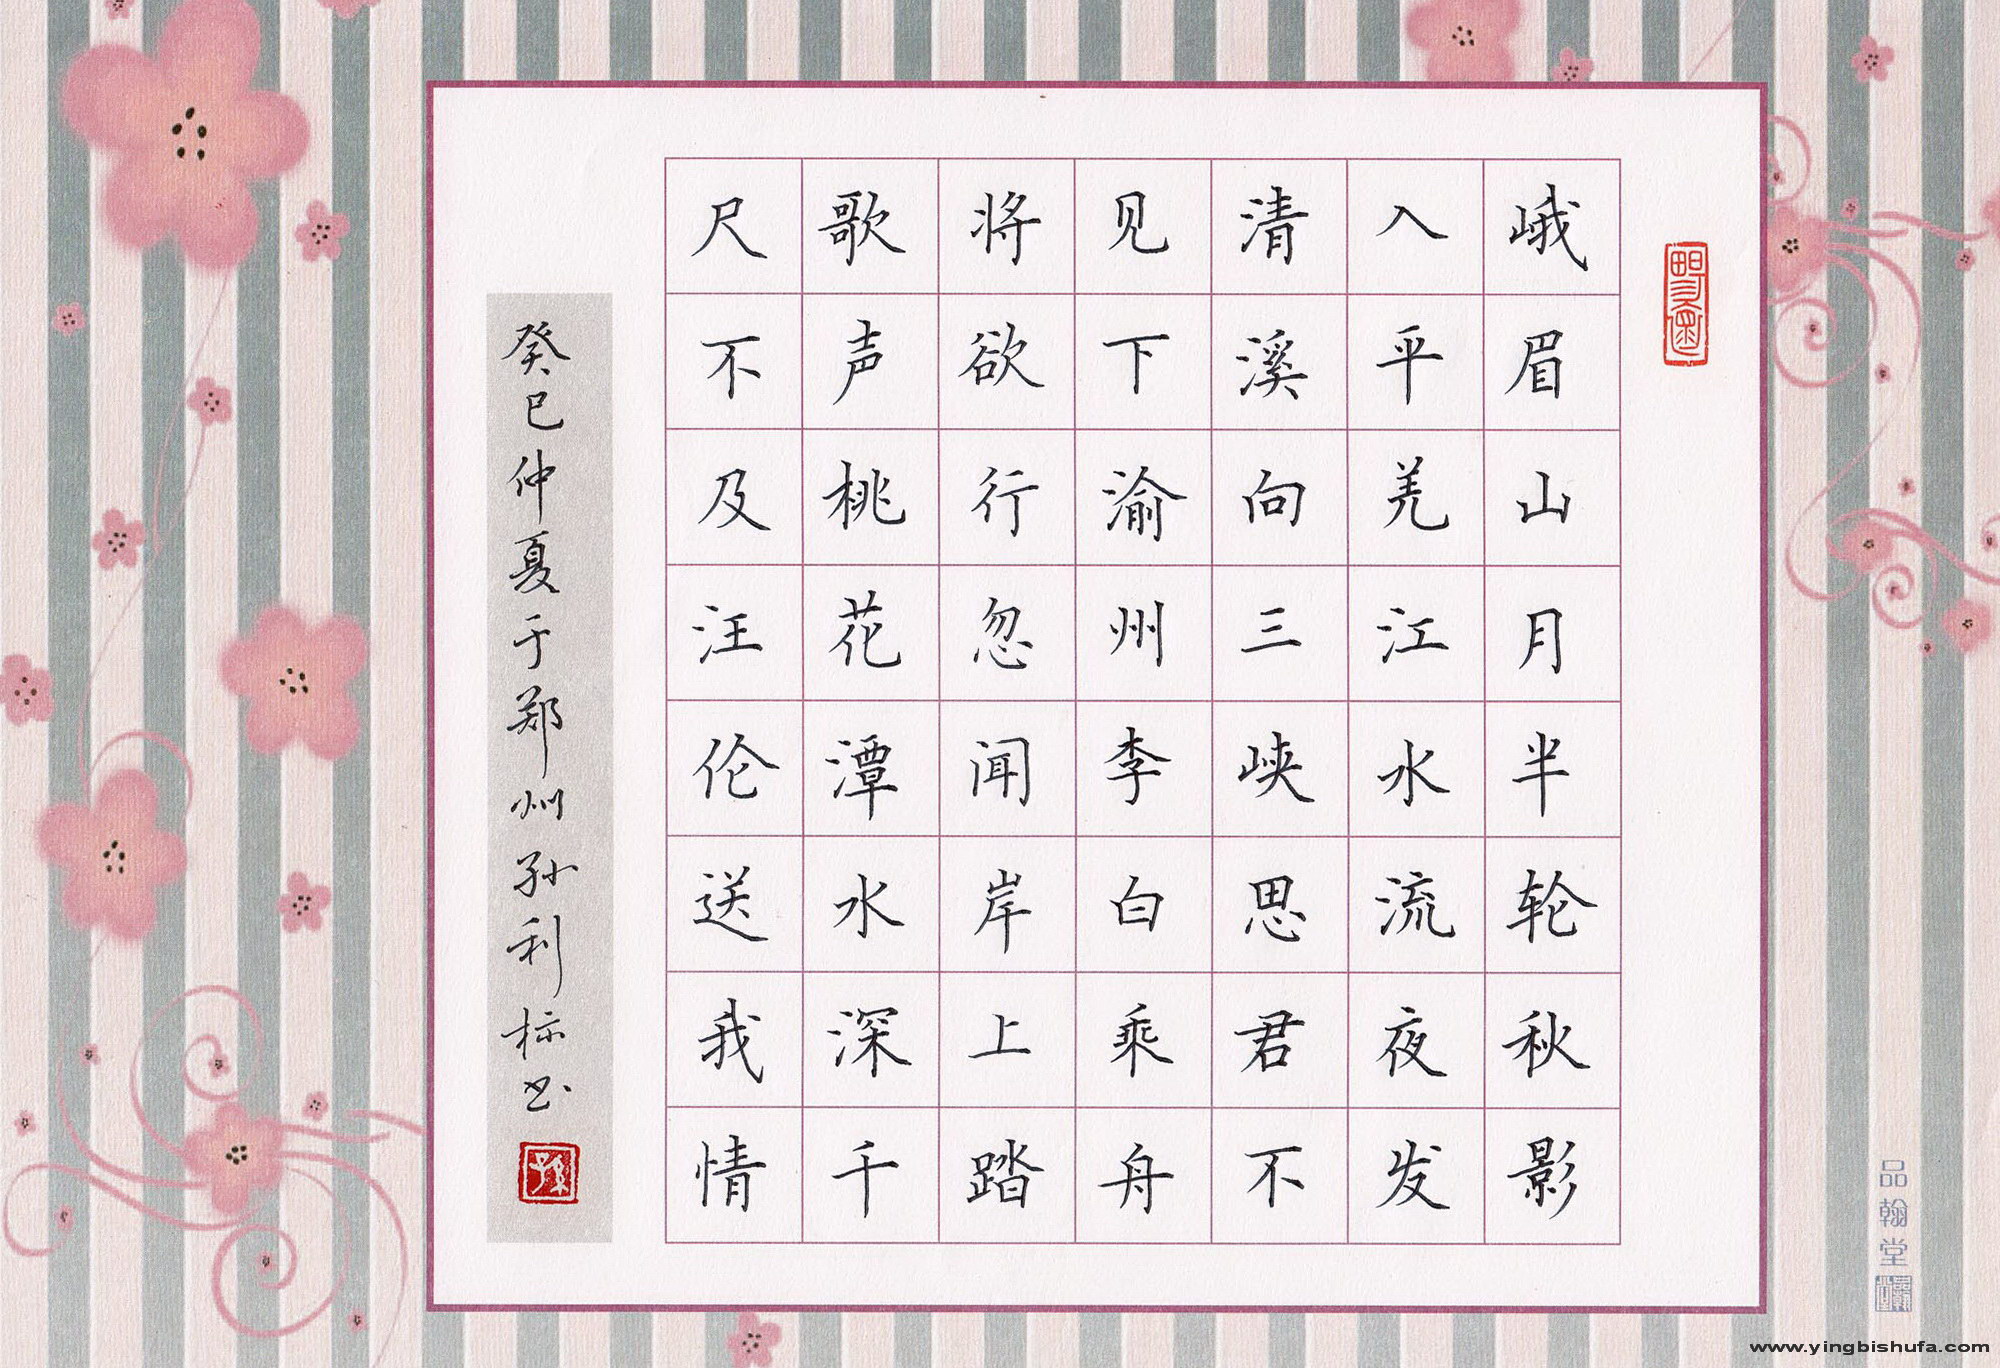 峨眉山月半轮秋影
入平羌江水流夜发
清溪向三峡思君不
见下渝州李白乘舟
将欲行忽闻岸上踏
歌声桃花潭水深千
尺不及汪伦送我情
癸巳仲夏于郑州孙利标书
品翰堂
www.yingbishufa.com